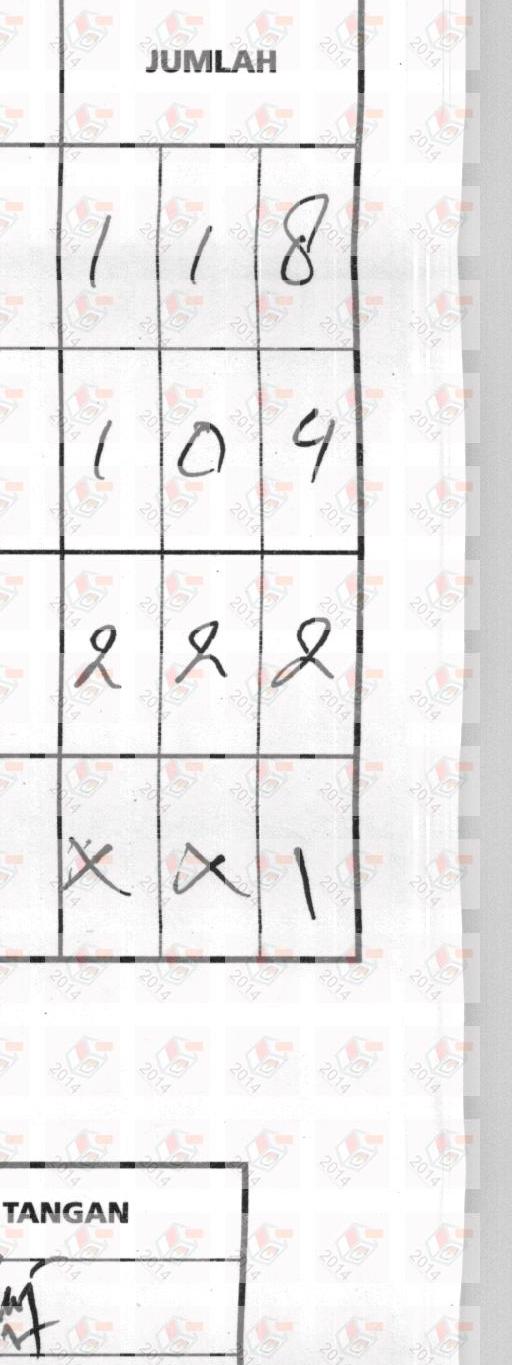 JUMLAH
1 1 8
1 0 4
2 2 2
X X 1
TANGAN